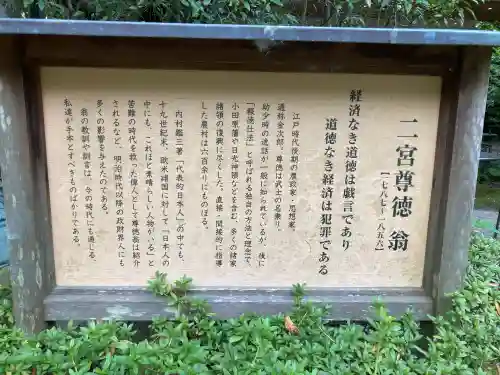 二宮尊徳翁
【一七八七〜一八五六】
経済なき道徳は戯言であり
道徳なき経済は犯罪である
江戸時代後期の農政家・思想家。
通称金次郎。尊徳は武士の名乗り。
幼少時の逸話が一般に知られているが、後に
「報徳仕法」と呼ばれる独自の方法と理念で、
小田原藩や日光神領などを含む、多くの諸家
諸領の復興に尽くした。直接・間接的に指導
した農村は六百余りにものぼる。
内村鑑三著「代表的日本人」の中でも、
十九世紀末、欧米諸国に対して「日本人の
中にも、これほど素晴らしい人物がいる」と
苦難の時代を救った偉人として尊徳翁は紹介
されるなど、明治時代以降の政財界人にも
多くの影響を与えたのである。
翁の教訓や訓言は、今の時代にも通じる、
私達が手本とすべきものばかりである。